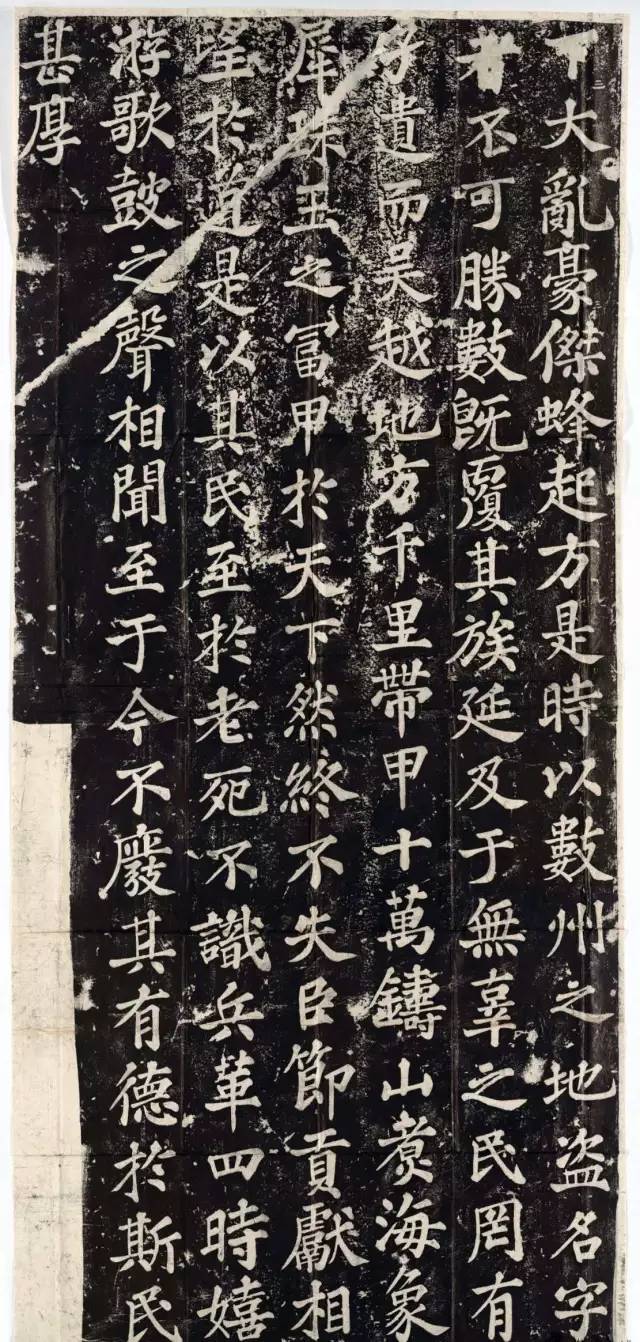 下大亂豪傑蜂起方是時以數州之地盜名字
者不可勝數既覆其族延及于無辜之民罔有
孑遺而吴越地方千里帶甲十萬鑄山煮海象
犀珠玉之冨甲於天下然終不失臣節貢獻相
望於道是以其民至於老死不識兵革四時嬉
游歌鼓之聲相聞至于今不廢其有德於斯民
甚厚